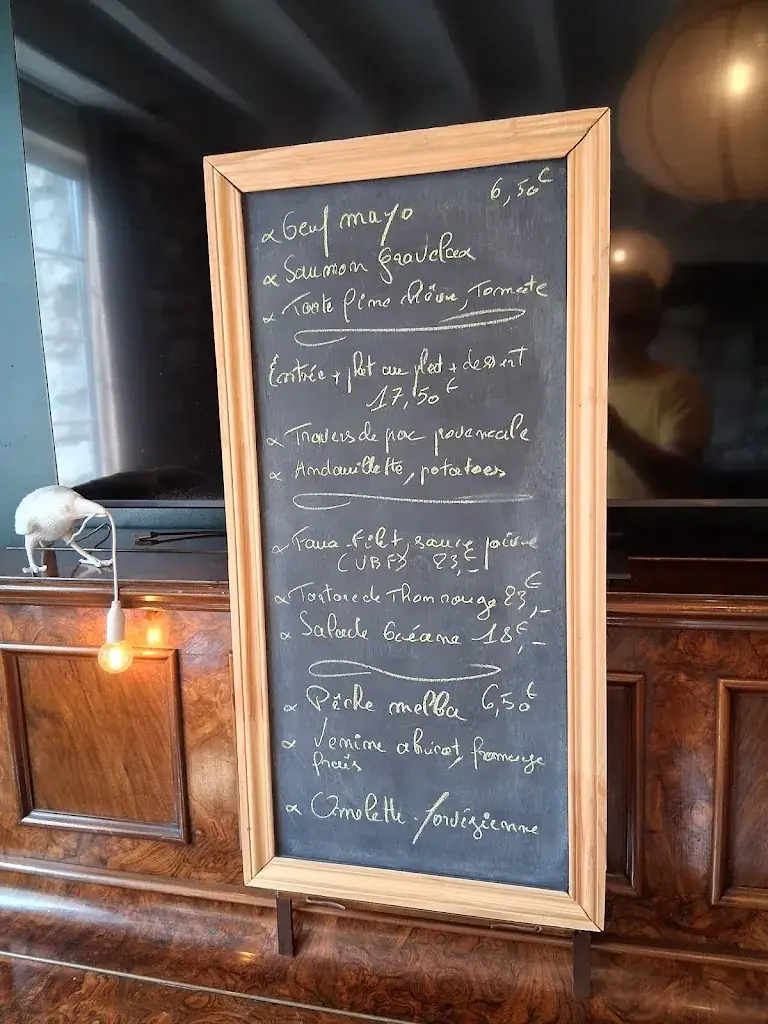 6,50€
Oeuf mayo
Saumon gravelax
Tarte fine chèvre, Tomate
Entrée + plat au plat + dessert
17,50€
Travers de porc provencale
Andouillette, potatoes
Faux-Filet, sauce poivre
(VBF) 23,-
Tartare de Thon rouge 23€,-
Salade Océane 18€,-
Pêche melba 6,50€
Verrine abricot, fromage
frais
Omelette norvégienne